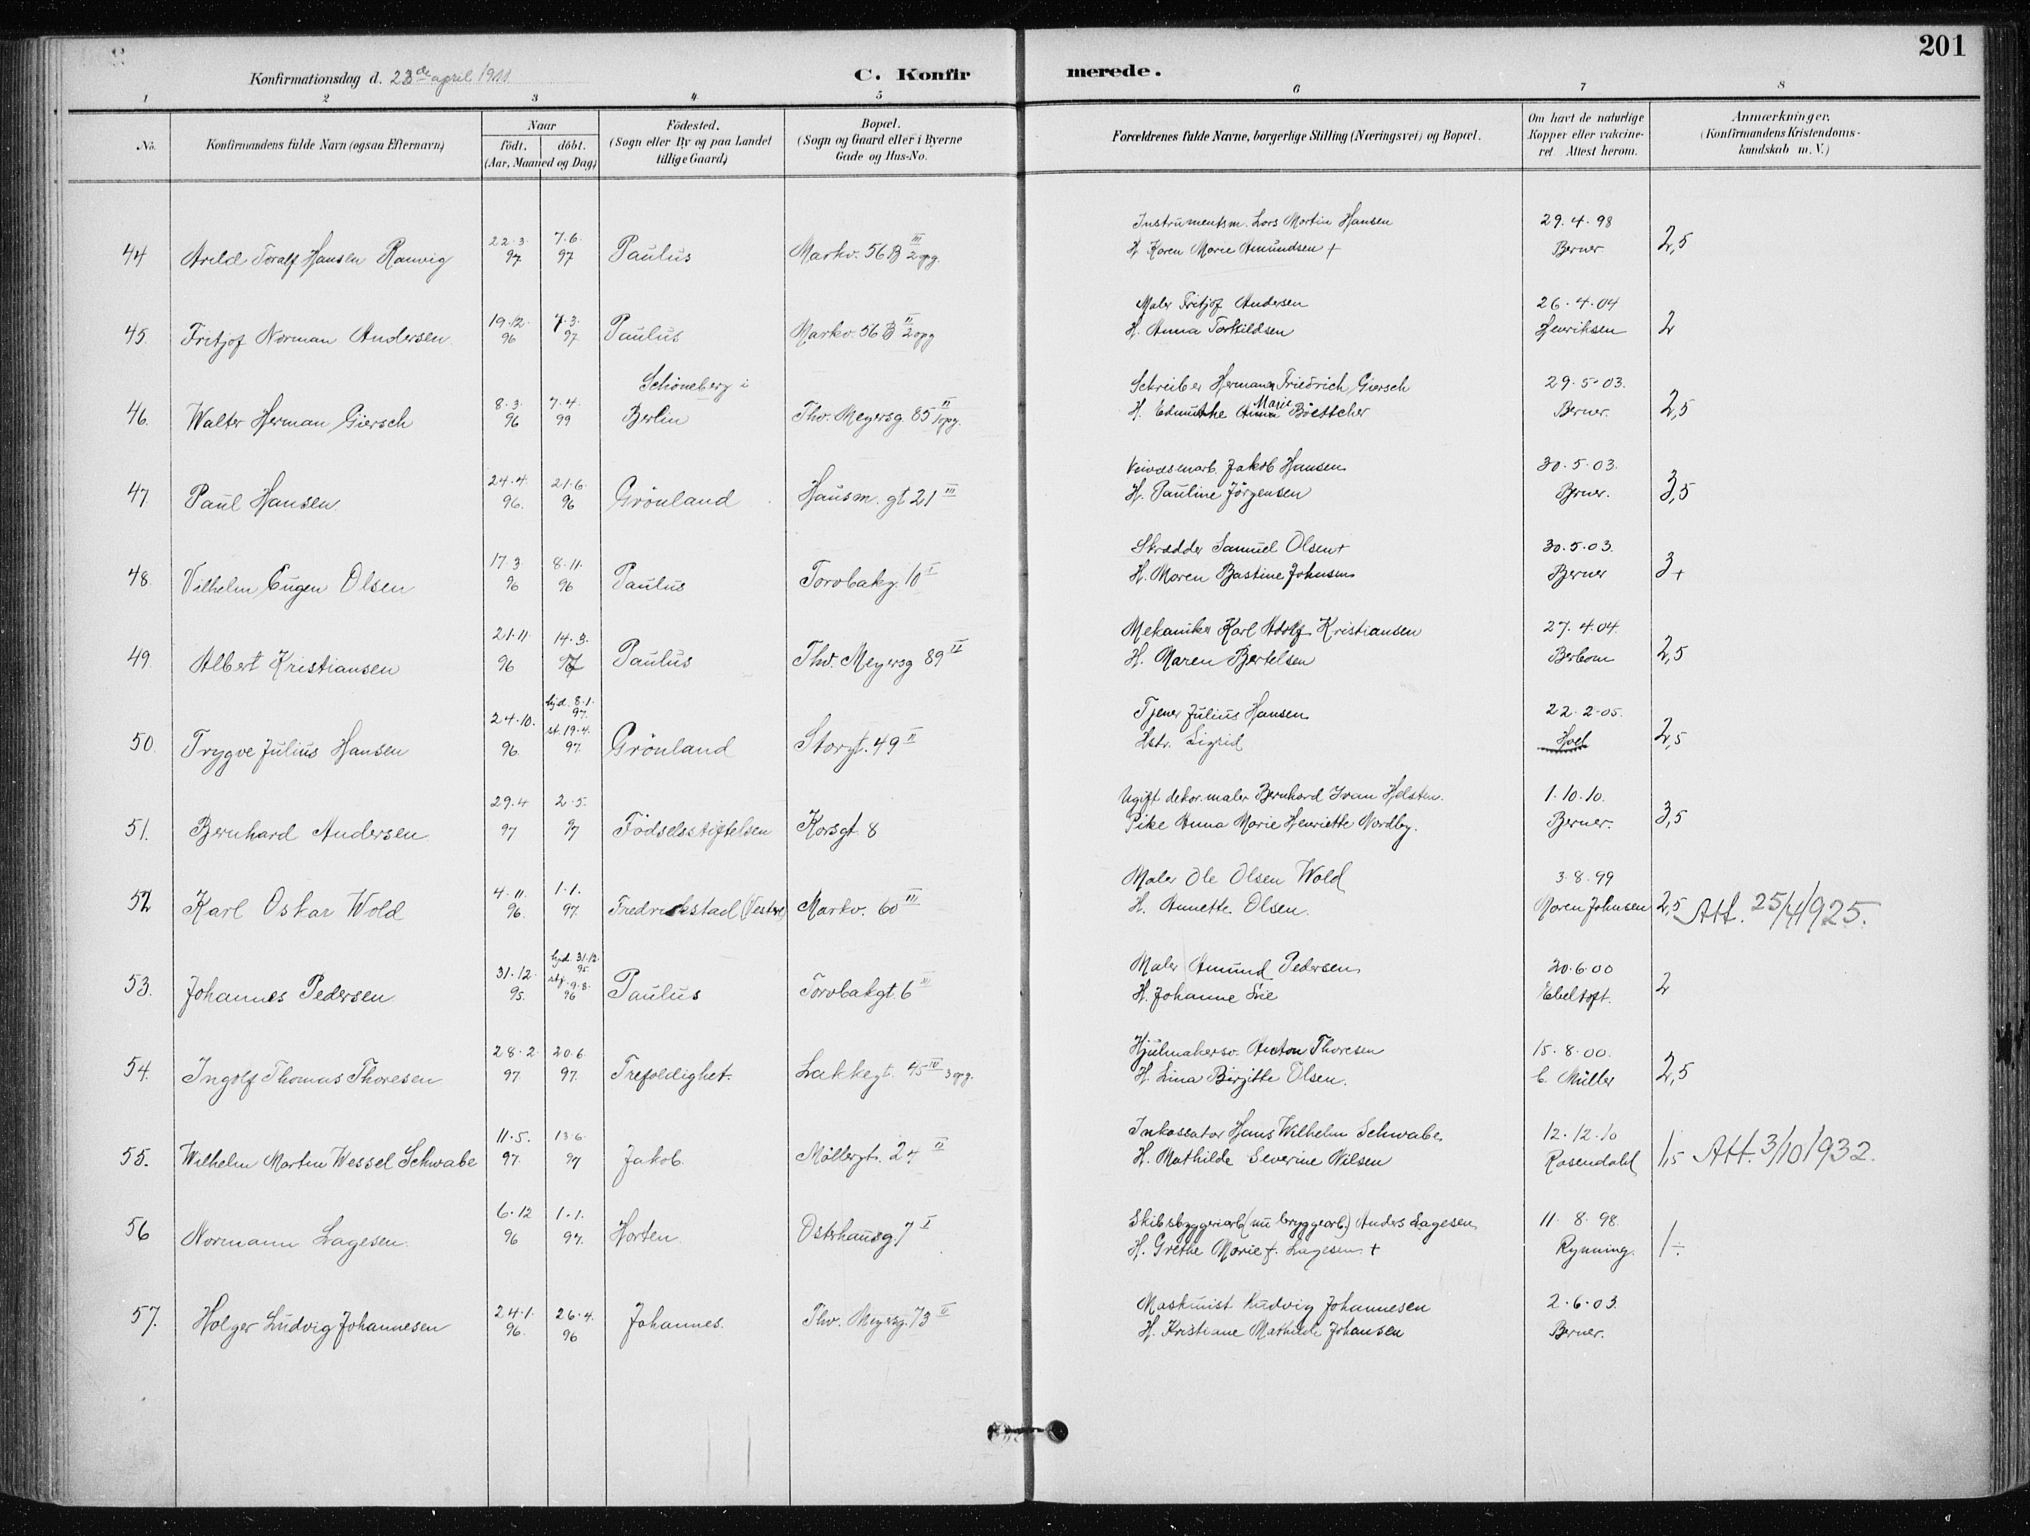 201
Konfirmationsdag d. 23de april 1911
C. Konfirmerede.
1 2 3 4 5 6 7 8
No. Konfirmandens fulde Navn (ogsaa Efternavn) Naar født. døbt. (Aar, Maaned og Dag) Fødested. (Sogn eller By og paa Landet tillige Gaard) Bopæl. (Sogn og Gaard eller i Byerne Gade og Hus-No. Forældrenes fulde Navne, borgerlige Stilling (Næringsvei) og Bopæl. Om havt de naturlige Kopper eller vakcineret. Attest herom. Anmærkninger. (Konfirmandens Kristendomskundskab m. V.)
22.3. 7.6. III Instrumentm. Lars Martin Hansen 29.4.98
44 Arild Toralf Hansen Ranvig 97 97 Paulus Markv. 56 B 2 opg. H. Karen Marie Amundsen + Berner 2,5
19.12. 7.3. II Maler Fritjof Andersen 26.4.04
45. Fritjof Norman Andersen 96 97 Paulus Markv. 56 B 2 opg H. Anna Torkildsen Henriksen 2
8.3. 7.4. Schöneberg i II Schreiber Hermann Friedrich Giersch 29.5.03.
46. Walter Herman Giersch 96 99 Berlin Thv. Meyersg. 85 1 opg. H. Edmuthe Anna Marie Böettcher Berner. 2,5
24.4. 21.6. Veivæsenarb. Jakob Hansen 30.5.03.
47. Paul Hansen 96. 96 Grönland Hausm. gt 21 III H. Pauline Jörgensen Berner. 3,5
17.3 8.11. Skrædder Samuel Olsen + 30.5.03.
48. Vilhelm Eugen Olsen 96 96 Paulus Torvbakg. 10 I H. Maren Bastine Johnsen Berner 3+
21.11. 14.3. Mekaniker Karl Adolf Kristiansen 27.4.04.
49. Albert Kristiansen 96 97 Paulus Thv. Meyersg 89 IV H. Maren Bertelsen Berbom 2,5
24.10. hjd. 8.1. 97. st. 19.4. Tjener Julius Hansen 22.2.05.
50. Trygve Julius Hansen 96. 97. Grönland Storgt. 49 II Hstr. Sigrid Hoel 2,5
29.4 2.5. Ugift dekor. maler Bernhard Ivan Holsten. 1.10.10.
51. Bernhard Andersen 97 97 Födselsstiftelsen Korsgt. 8 Pike Anna Marie Henriette Nordby. Berner. 3,5
4.11. 1.1. Maler Ole Olsen Wold 3.8.99
52 Karl Oskar Wold 96. 97. Fredrikstad (Vestre) Markv. 60 III H. Annette Olsen. Maren Johnsen 2,5 Att. 25/4 1925.
31.12. hjd. 31.12. 95 9.8. Maler Amund Pedersen 20.6.00
53. Johannes Pedersen 95. 96 Paulus Torvbakgt. 6 III H. Johanne Lie Ebeltoft. 2
28.2. 20.6. Hjulmakersv. Anton Thoresen 15.8.00.
54. Ingolf Thomas Thoresen 97. 97. Trefoldighet. Lakkegt. 45 IV 3 opg. H. Lina Birgitte Olsen. C. Müller 2,5
11.5. 13.6. Inkassator Hans Wilhelm Schwabe 12.12.10
55. Wilhelm Martin Wessel Schwabe 97. 97 Jakob. Möllergt. 24 II H. Mathilde Severine Nilsen Rosendahl 1,5 Att. 3/10 1932.
6.12 1.1. Skibsbyggeriarb. (nu bryggearb.) Anders Lagesen 11.8.98.
56 Normann Lagesen. 96 97. Horten Osterhausg 7 I H. Grethe Marie f. Lagesen + Rynning. 1÷
24.1. 26.4. Maskinist Ludvig Johannesen 2.6.03.
57. Holger Ludvig Johannesen 96. 96 Johannes. Thv. Meyersg. 73 II H. Kristiane Mathilde Johansen Berner.